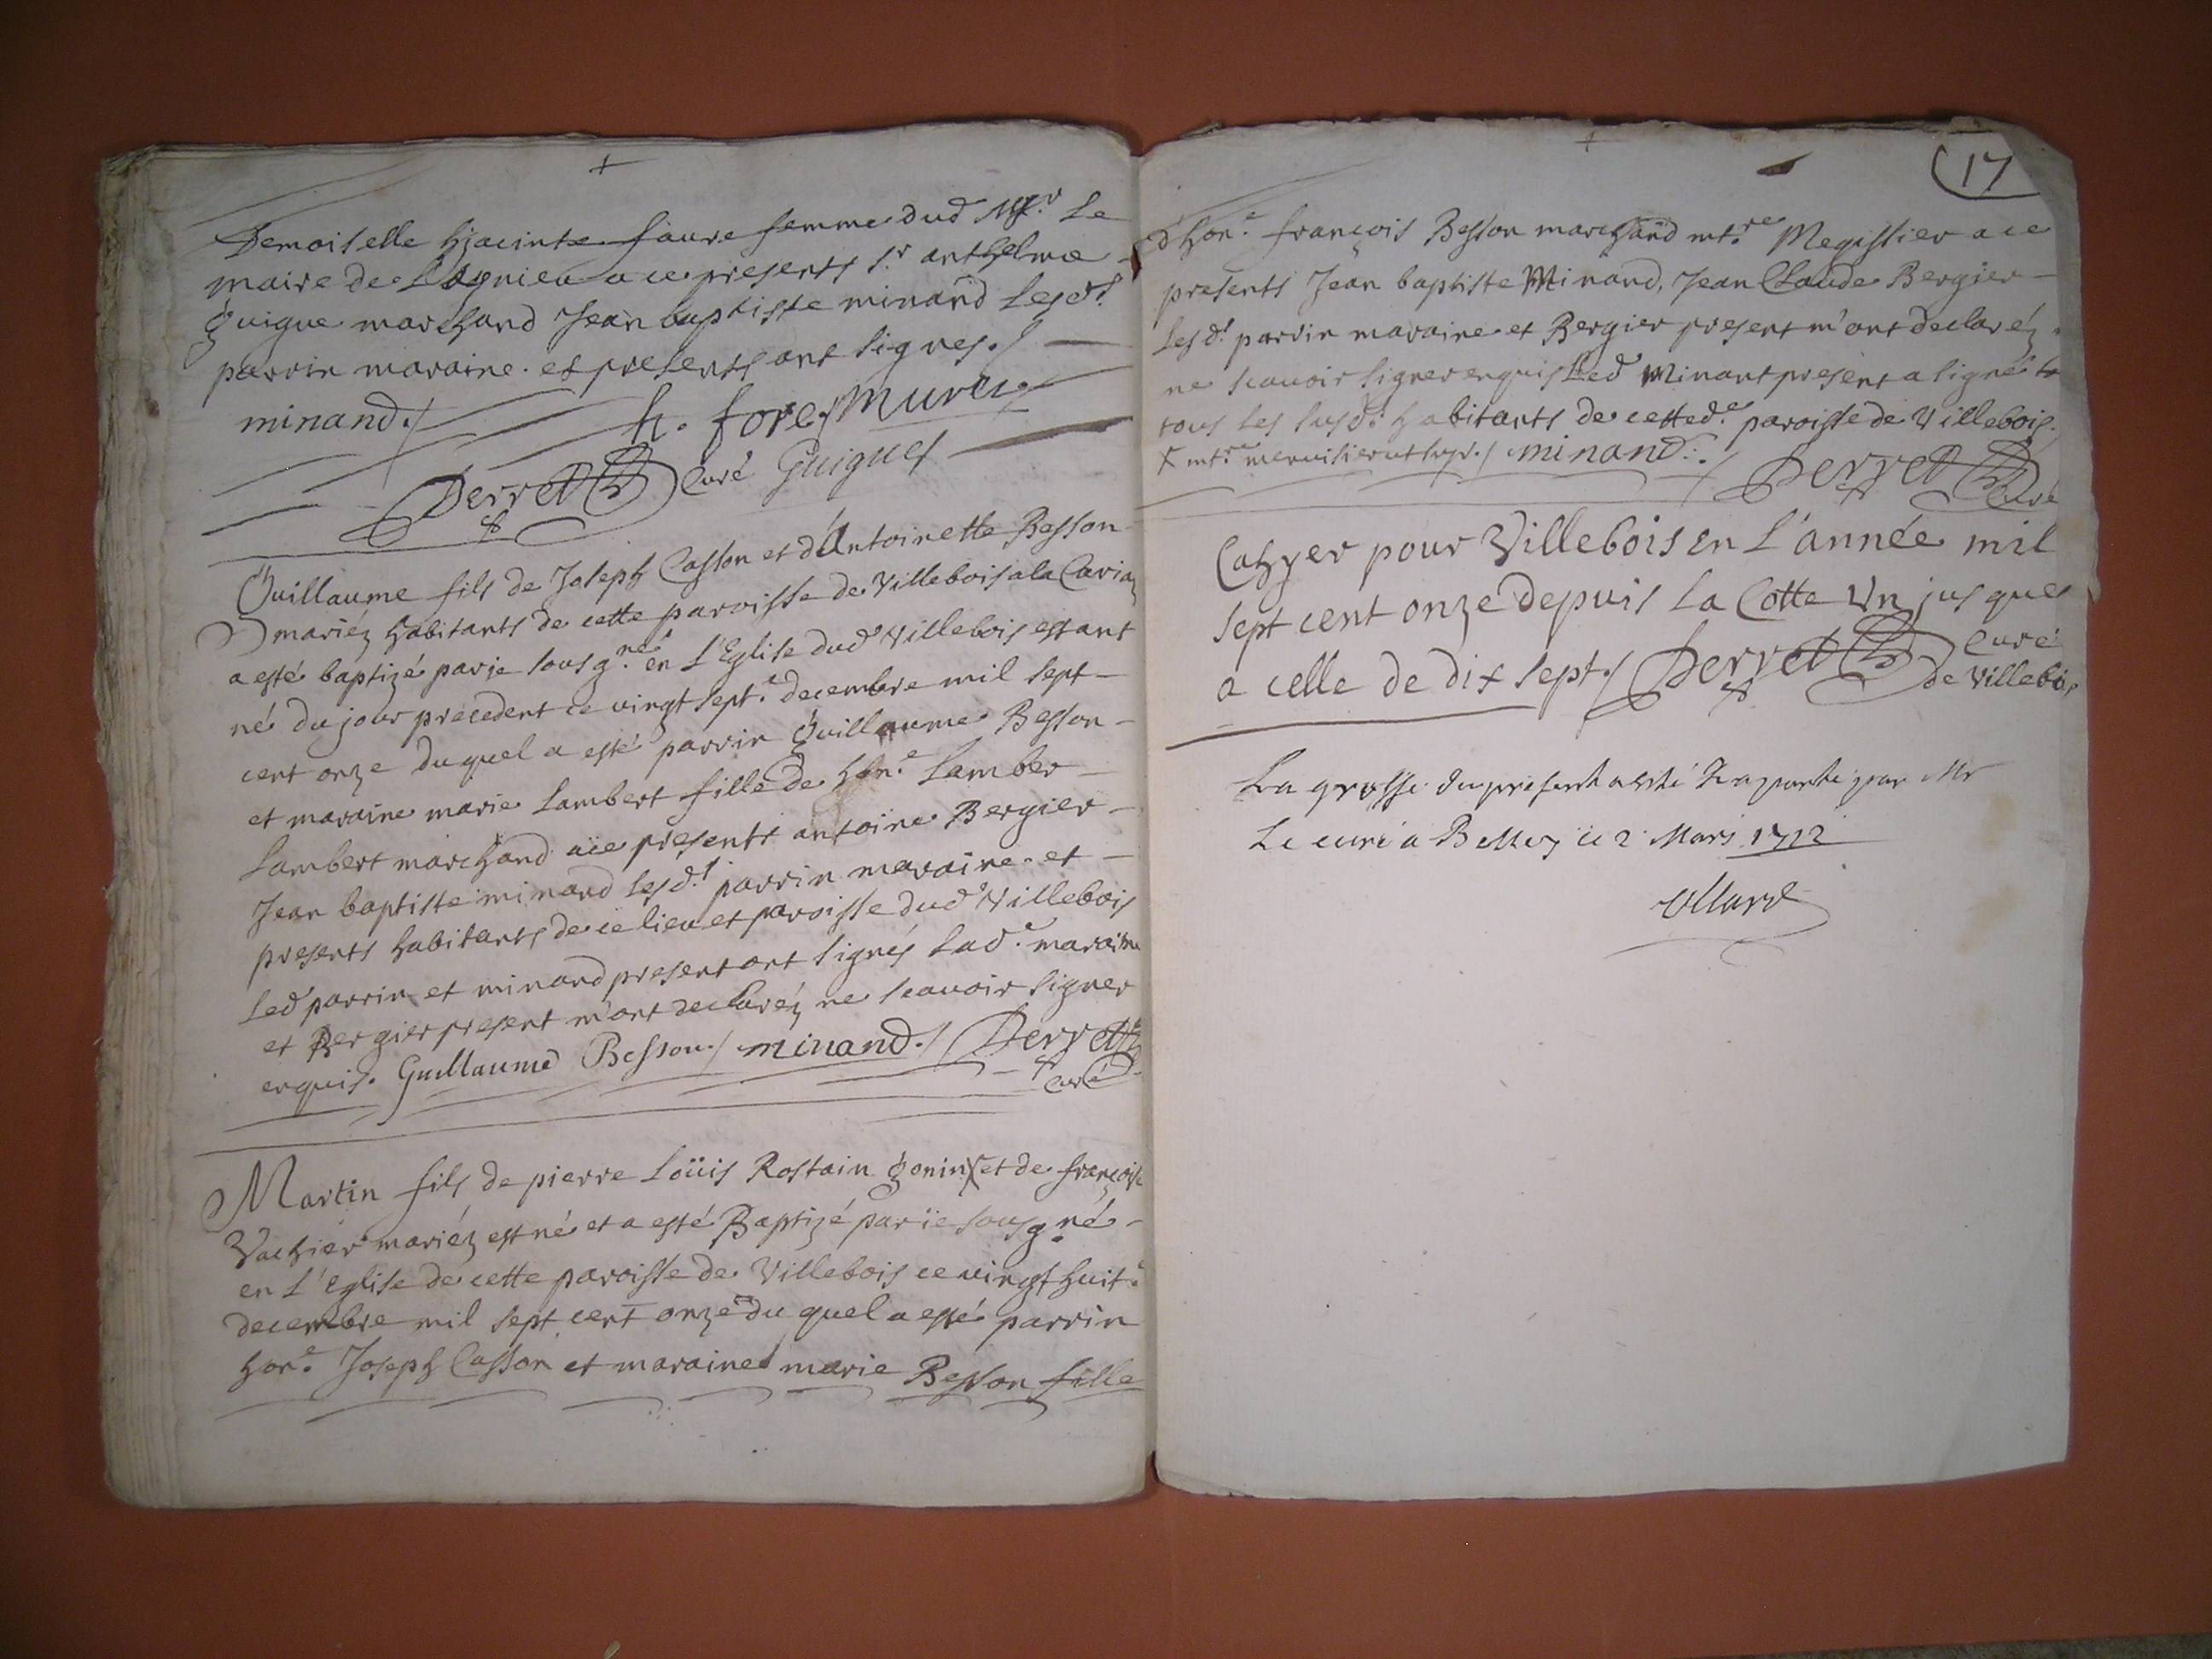 Demoiselle hjacinte faure femme dud Mr. Le
maire de Lagnieu a ce presents Sr. anthelme
Guigue marchand Jean baptiste minand Lesd.s
parrin maraine et presents ont signes./
minand./ h. fore./ Muret
Perret Curé Guigues
Guillaume fils de Joseph Casson et d'Antoinette Besson
mariéz habitants de cette paroisse de Villebois a la
a esté baptizé par je sousg.né en L'Eglise dud Villebois estant
né du jour precedent ce vingt sept.e decembre mil sept
cent onze duquel a esté parrin Guillaume Besson
et maraine marie Lambert fille de hon.e Lamber
Lambert marchand a ce presents antoine Bergier
Jean baptiste minand Lesd.s parrin maraine et
presents habitants de ce lieu et paroisse dud Villebois
Led parrin et minand present ont signés Lad.e maraine
et Bergier present m'ont declaréz ne scavoir signer
enquis. Guillaume Besson./ minand./ Perret
Curé
Martin fils de pierre Loüis Rostain Gonin et de françoise
Vachier mariéz est né et a esté Baptizé par je sousg.né
en L'Eglise de cette paroisse de Villebois ce vingt huit.e
decembre mil sept cent onze du quel a esté parrin
hon.e Joseph Casson et maraine marie Besson fille
17
d'hon.e françois Besson marchand mt.re Megissier a ce
presents Jean baptiste Minand, Jean Claude Bergier
Lesd.s parrin maraine et Bergier present m'ont declaréz
ne scavoir signer enquis Led Minant present a signé
tous les susd.s habitants de cetted.e paroisse de Villebois.
mt.re minand./ Perret
Curé
Cahyer pour Villebois en L'année mil
sept cent onze depuis La Cotte Un jusques
a celle de dix sept./ Perret Curé
de Villebois
La grosse du present a esté par Mr
Le curé a Belley ce 2 Mars 1712